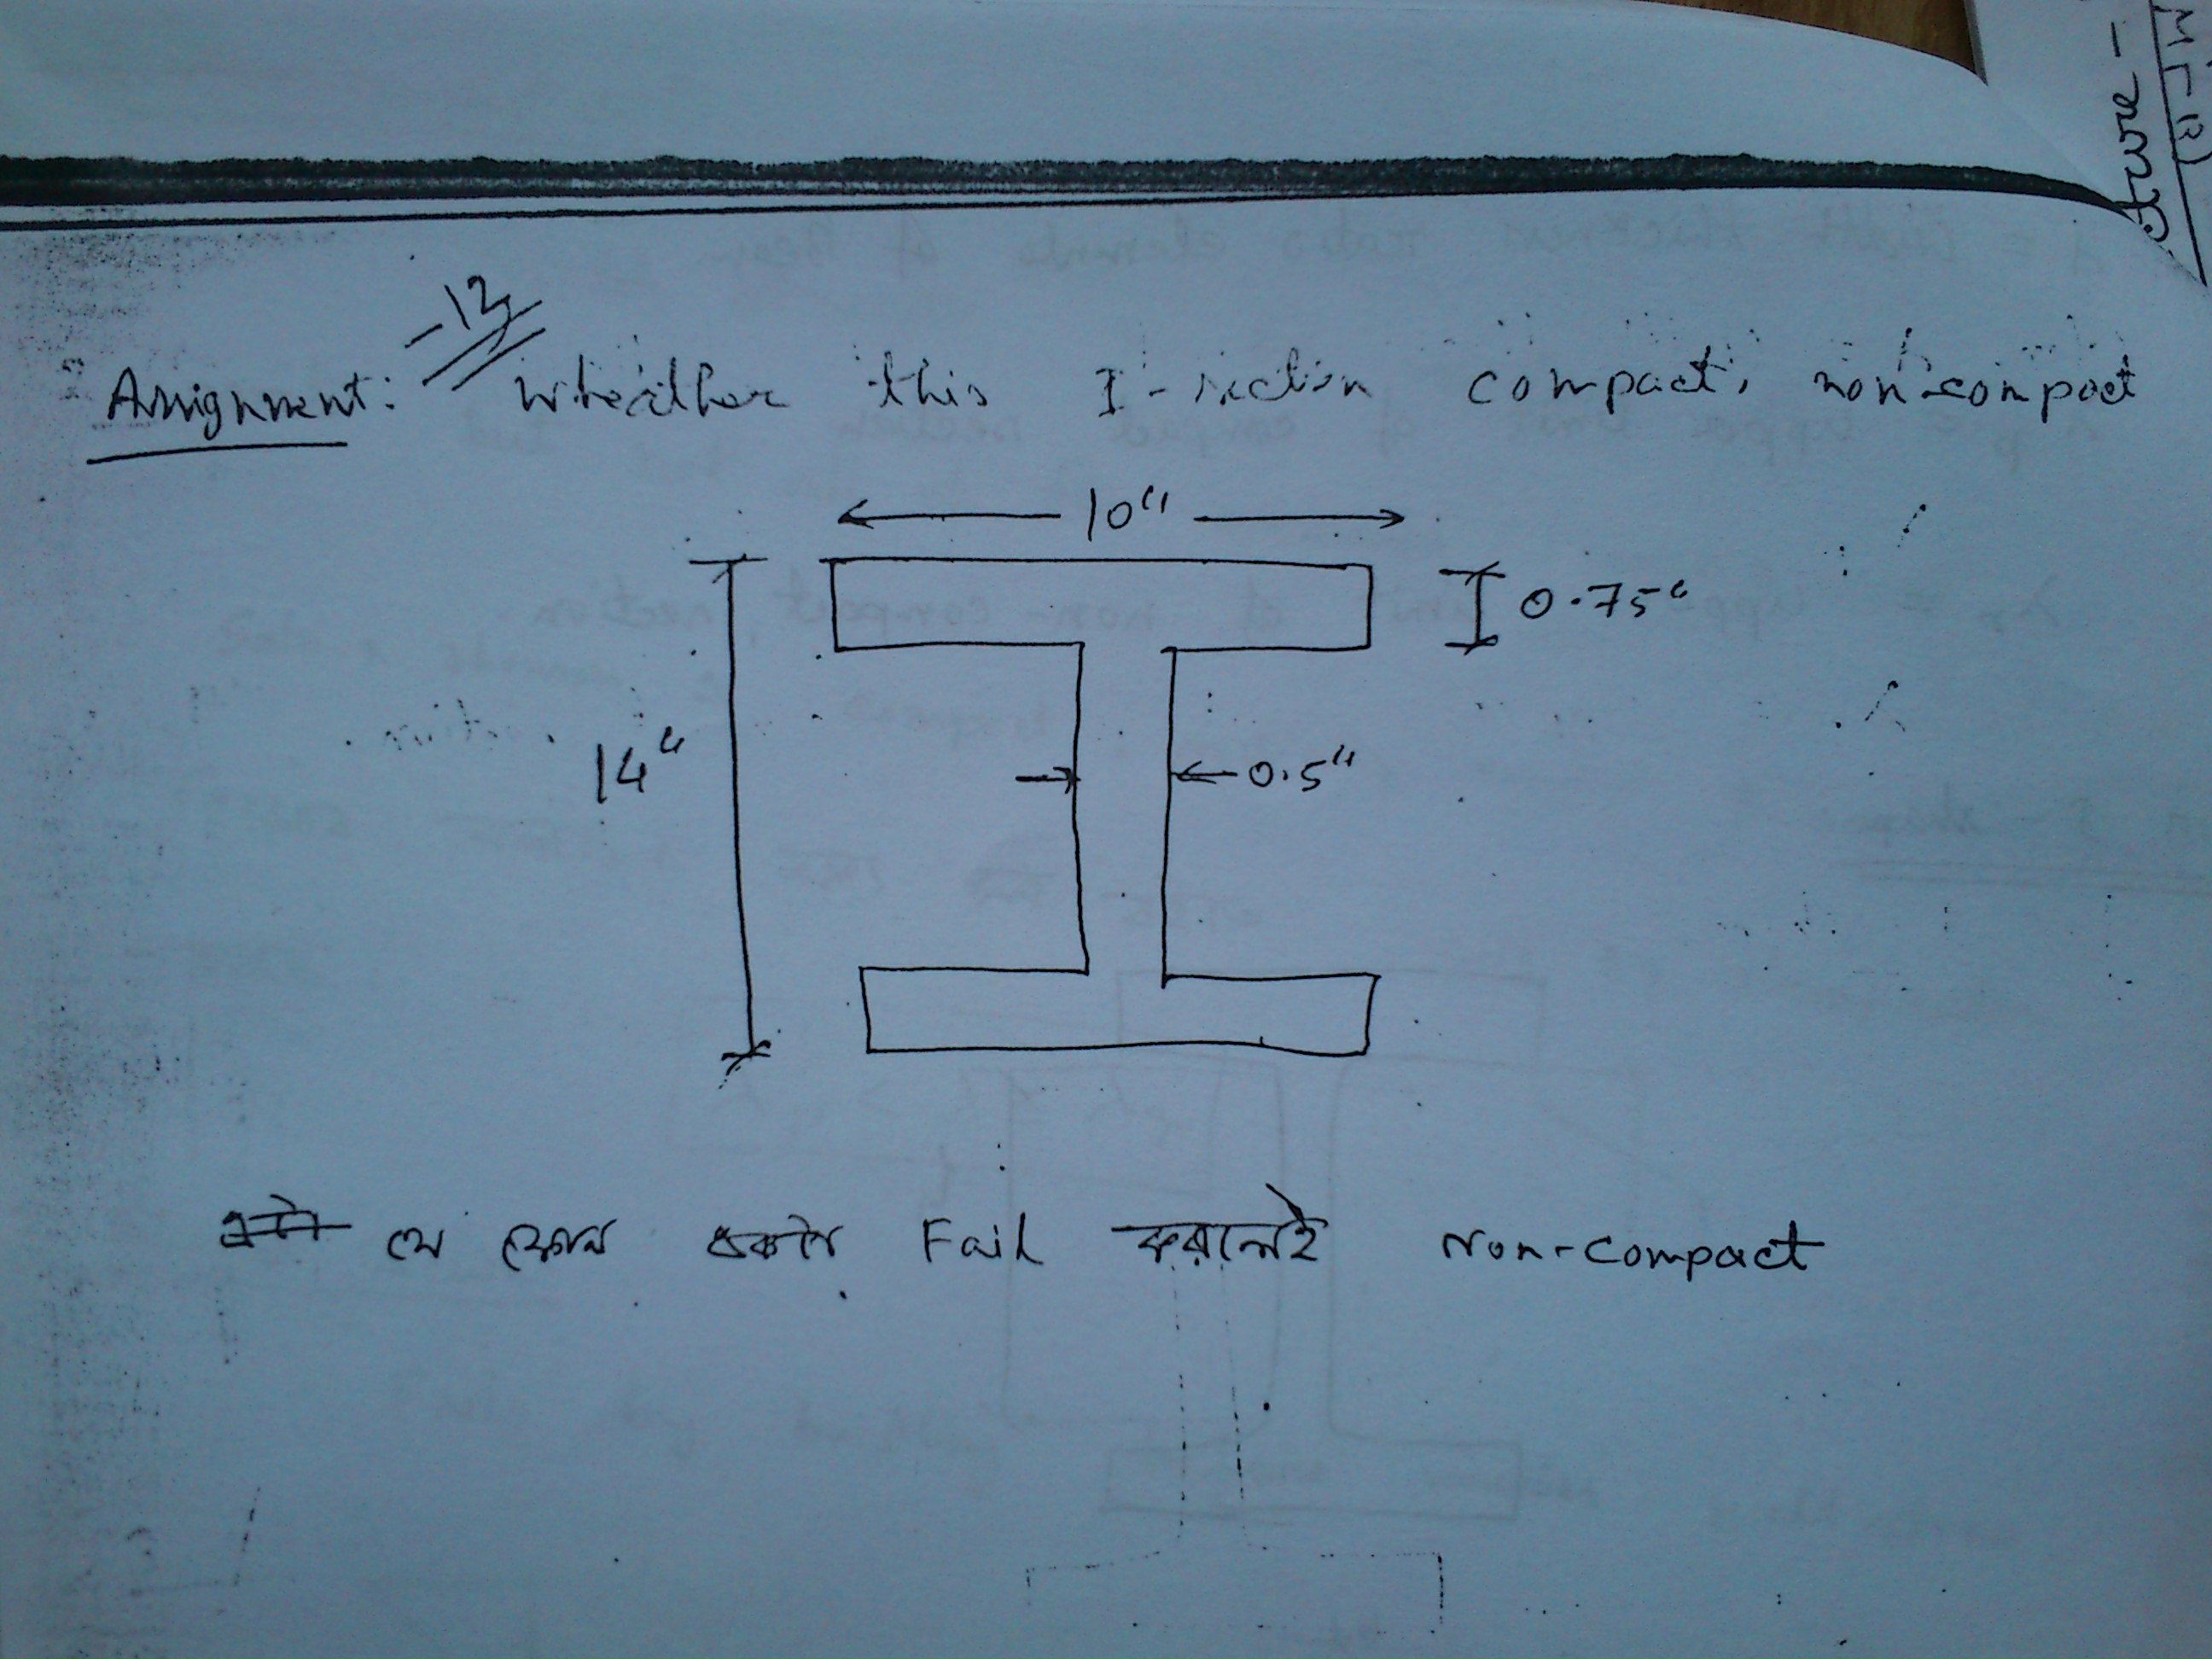 Assignment: -12 Wheather this I-section compact, non-compact
10"
0.75"
14"
0.5"
যে কোন একটা Fail করলেই Non-compact